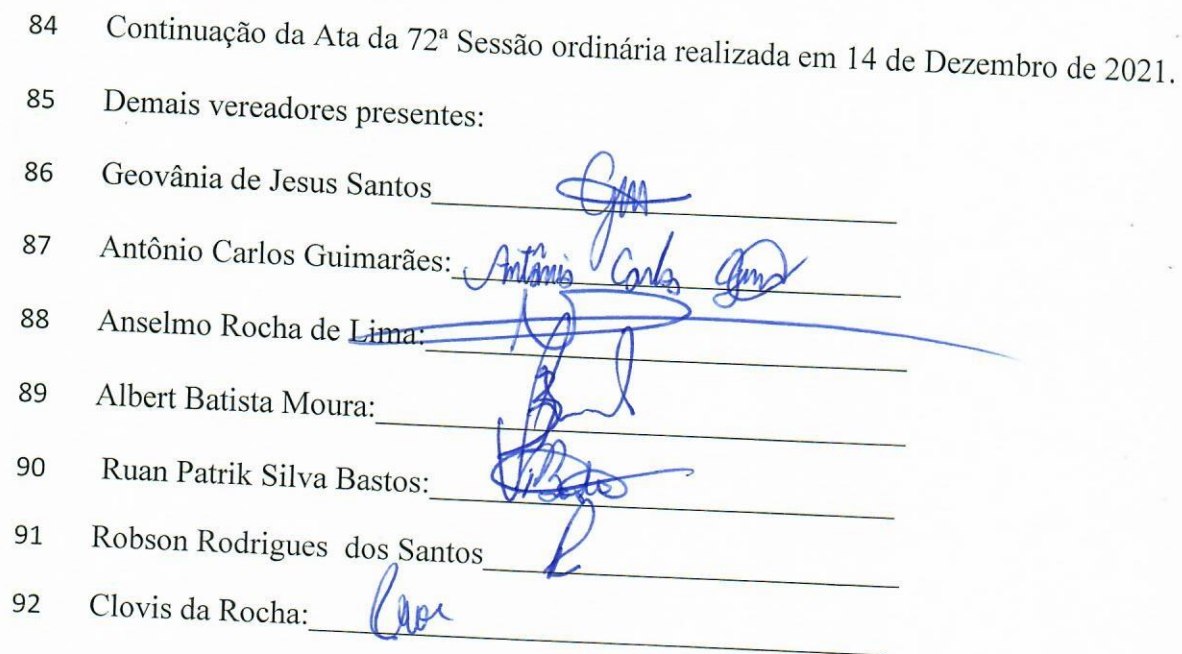 84 Continuação da Ata da 72ª Sessão ordinária realizada em 14 de Dezembro de 2021.
85 Demais vereadores presentes:
86 Geovânia de Jesus Santos
87 Antônio Carlos Guimarães: Antônio Carlos
88 Anselmo Rocha de Lima:
89 Albert Batista Moura:
90 Ruan Patrik Silva Bastos:
91 Robson Rodrigues dos Santos
92 Clovis da Rocha: